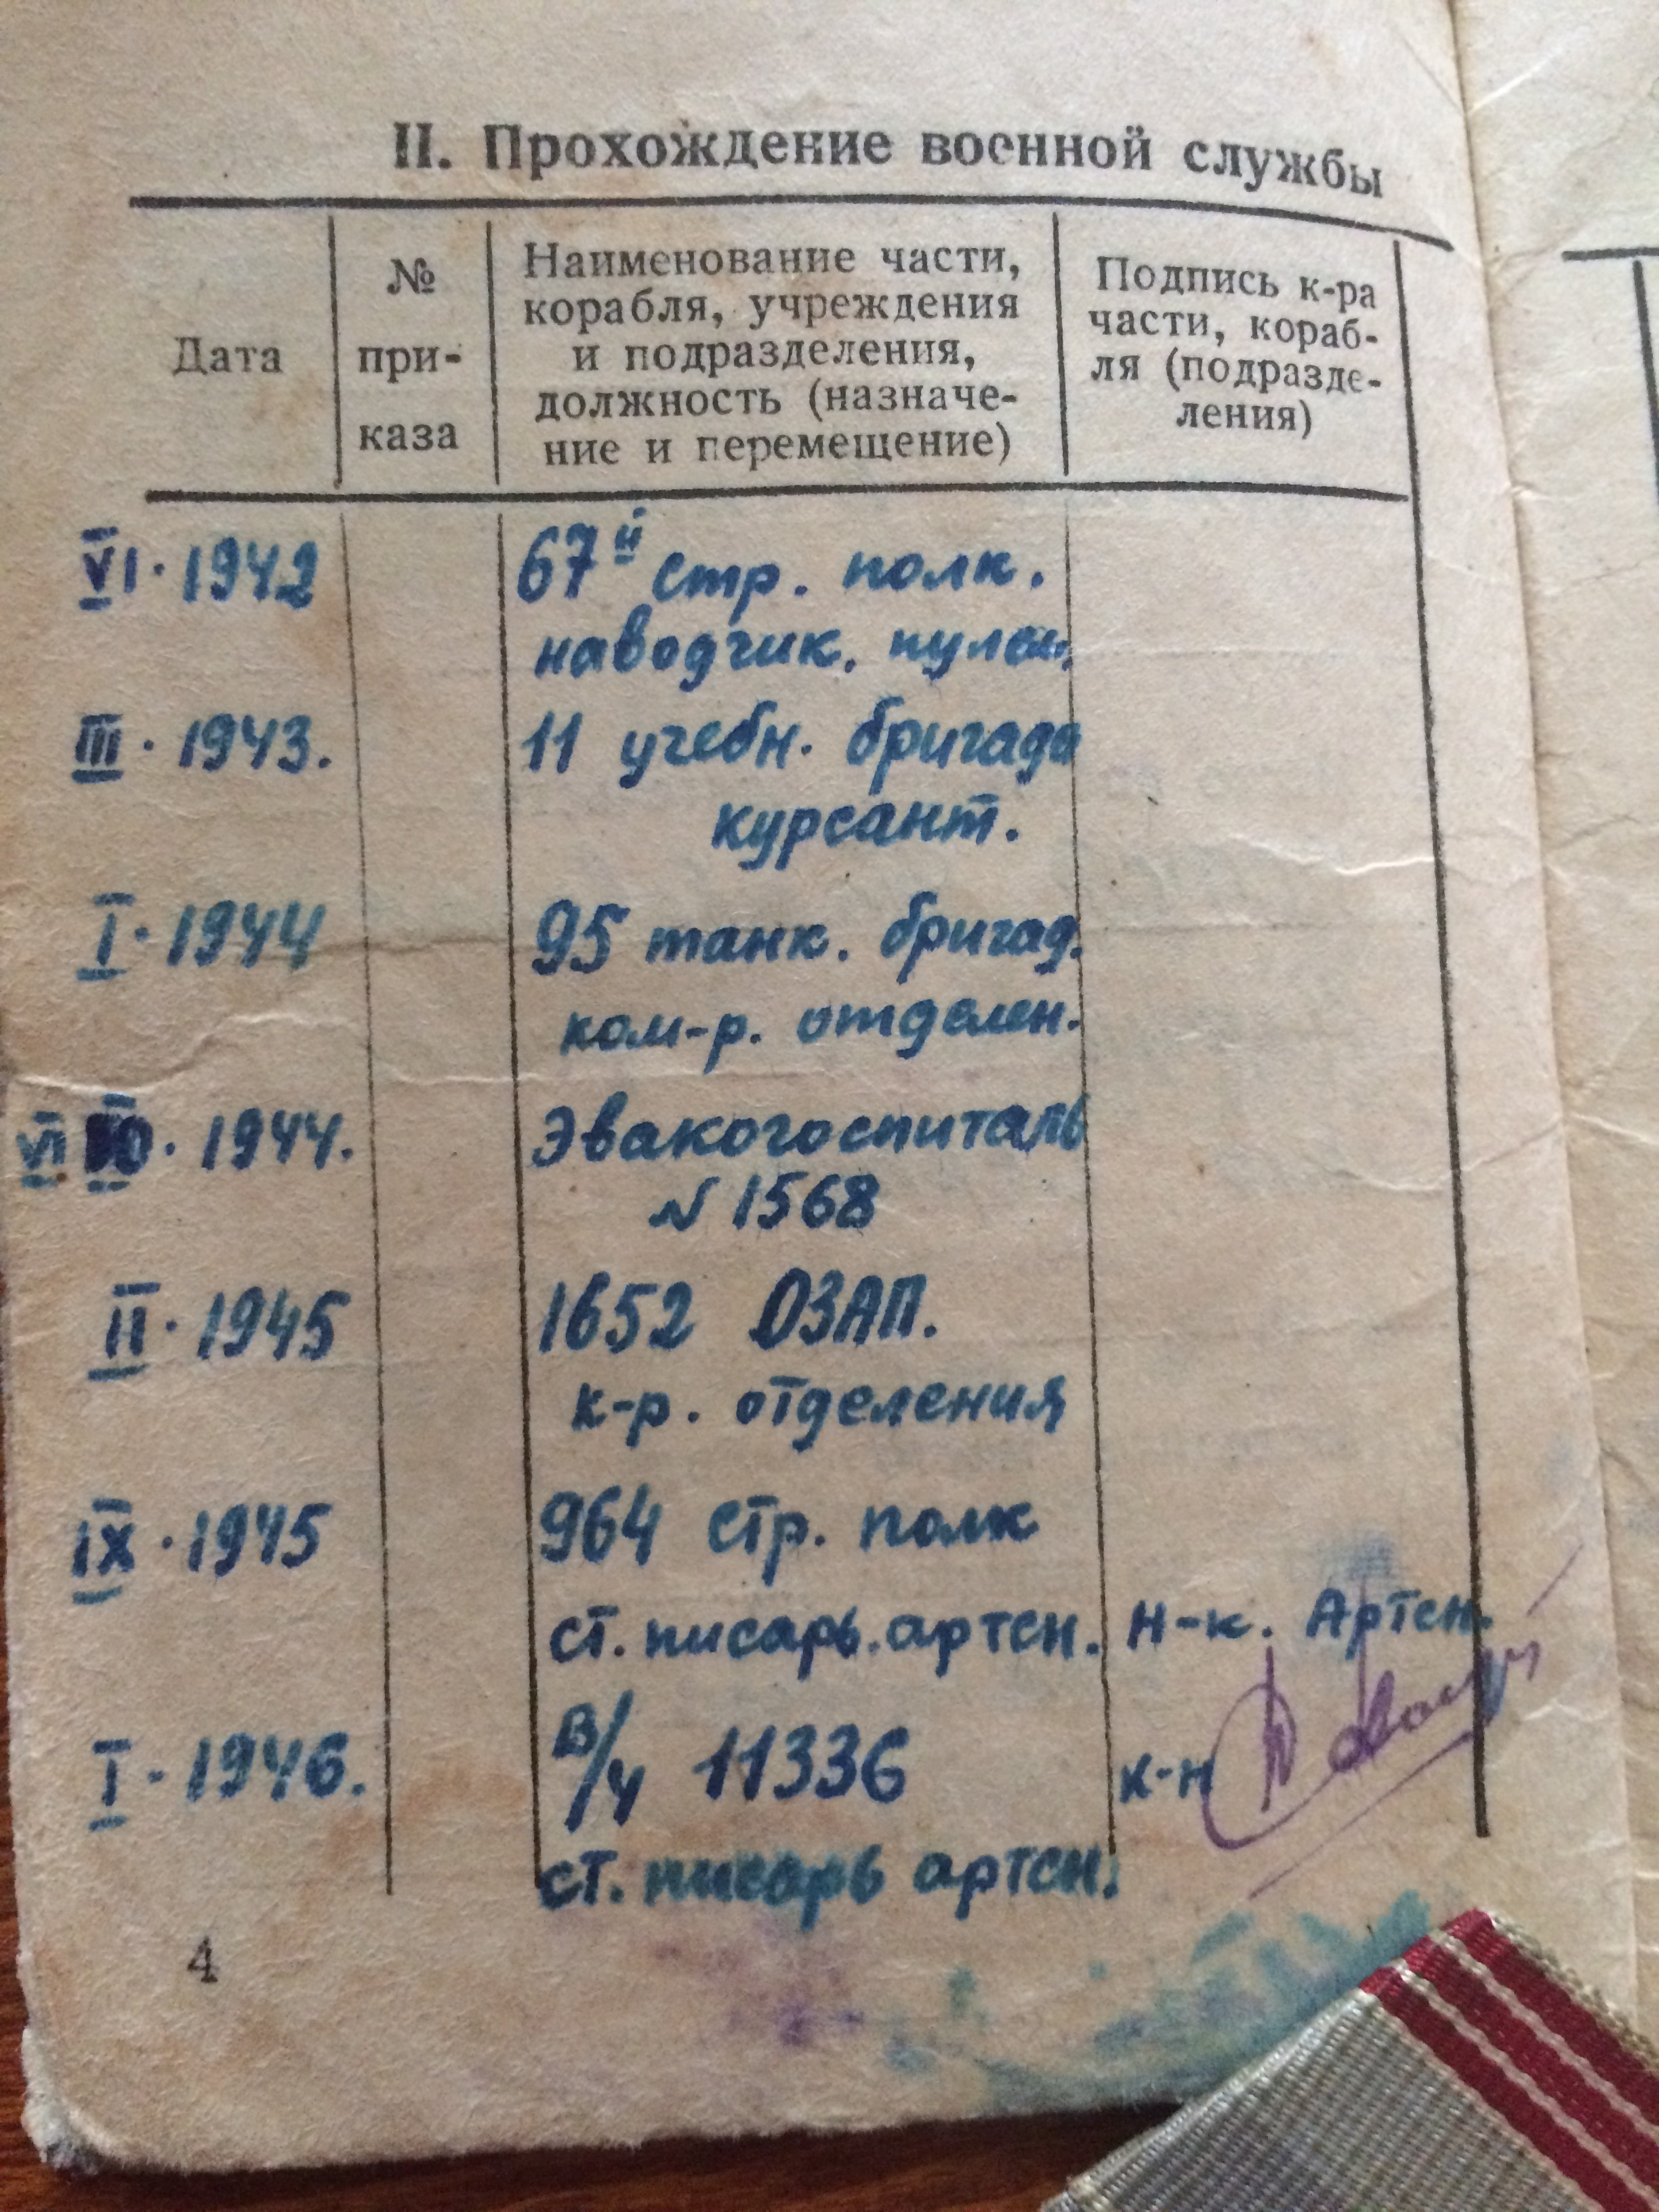 II. Прохождение военной службы
Дата
№
при-
каза
Наименование части,
корабля, учреждения
и подразделения,
должность (назначе-
ние и перемещение)
Подпись к-ра
части, кораб-
ля (подразде-
ления)
VI · 1942
67й стр. полк.
наводчик. пулем.
III · 1943.
11 учебн. бригада
курсант.
I · 1944
95 танк. бригад.
ком-р. отделен.
VI · 1944.
Эвакогоспиталь
N 1568
II · 1945
1652 ОЗАП.
к-р. отделения
IX · 1945
964 стр. полк
ст. писарь. артсн.
Н-к. Артсн.
I · 1946.
В/ч 11336
к-н
ст. писарь артсн.
4